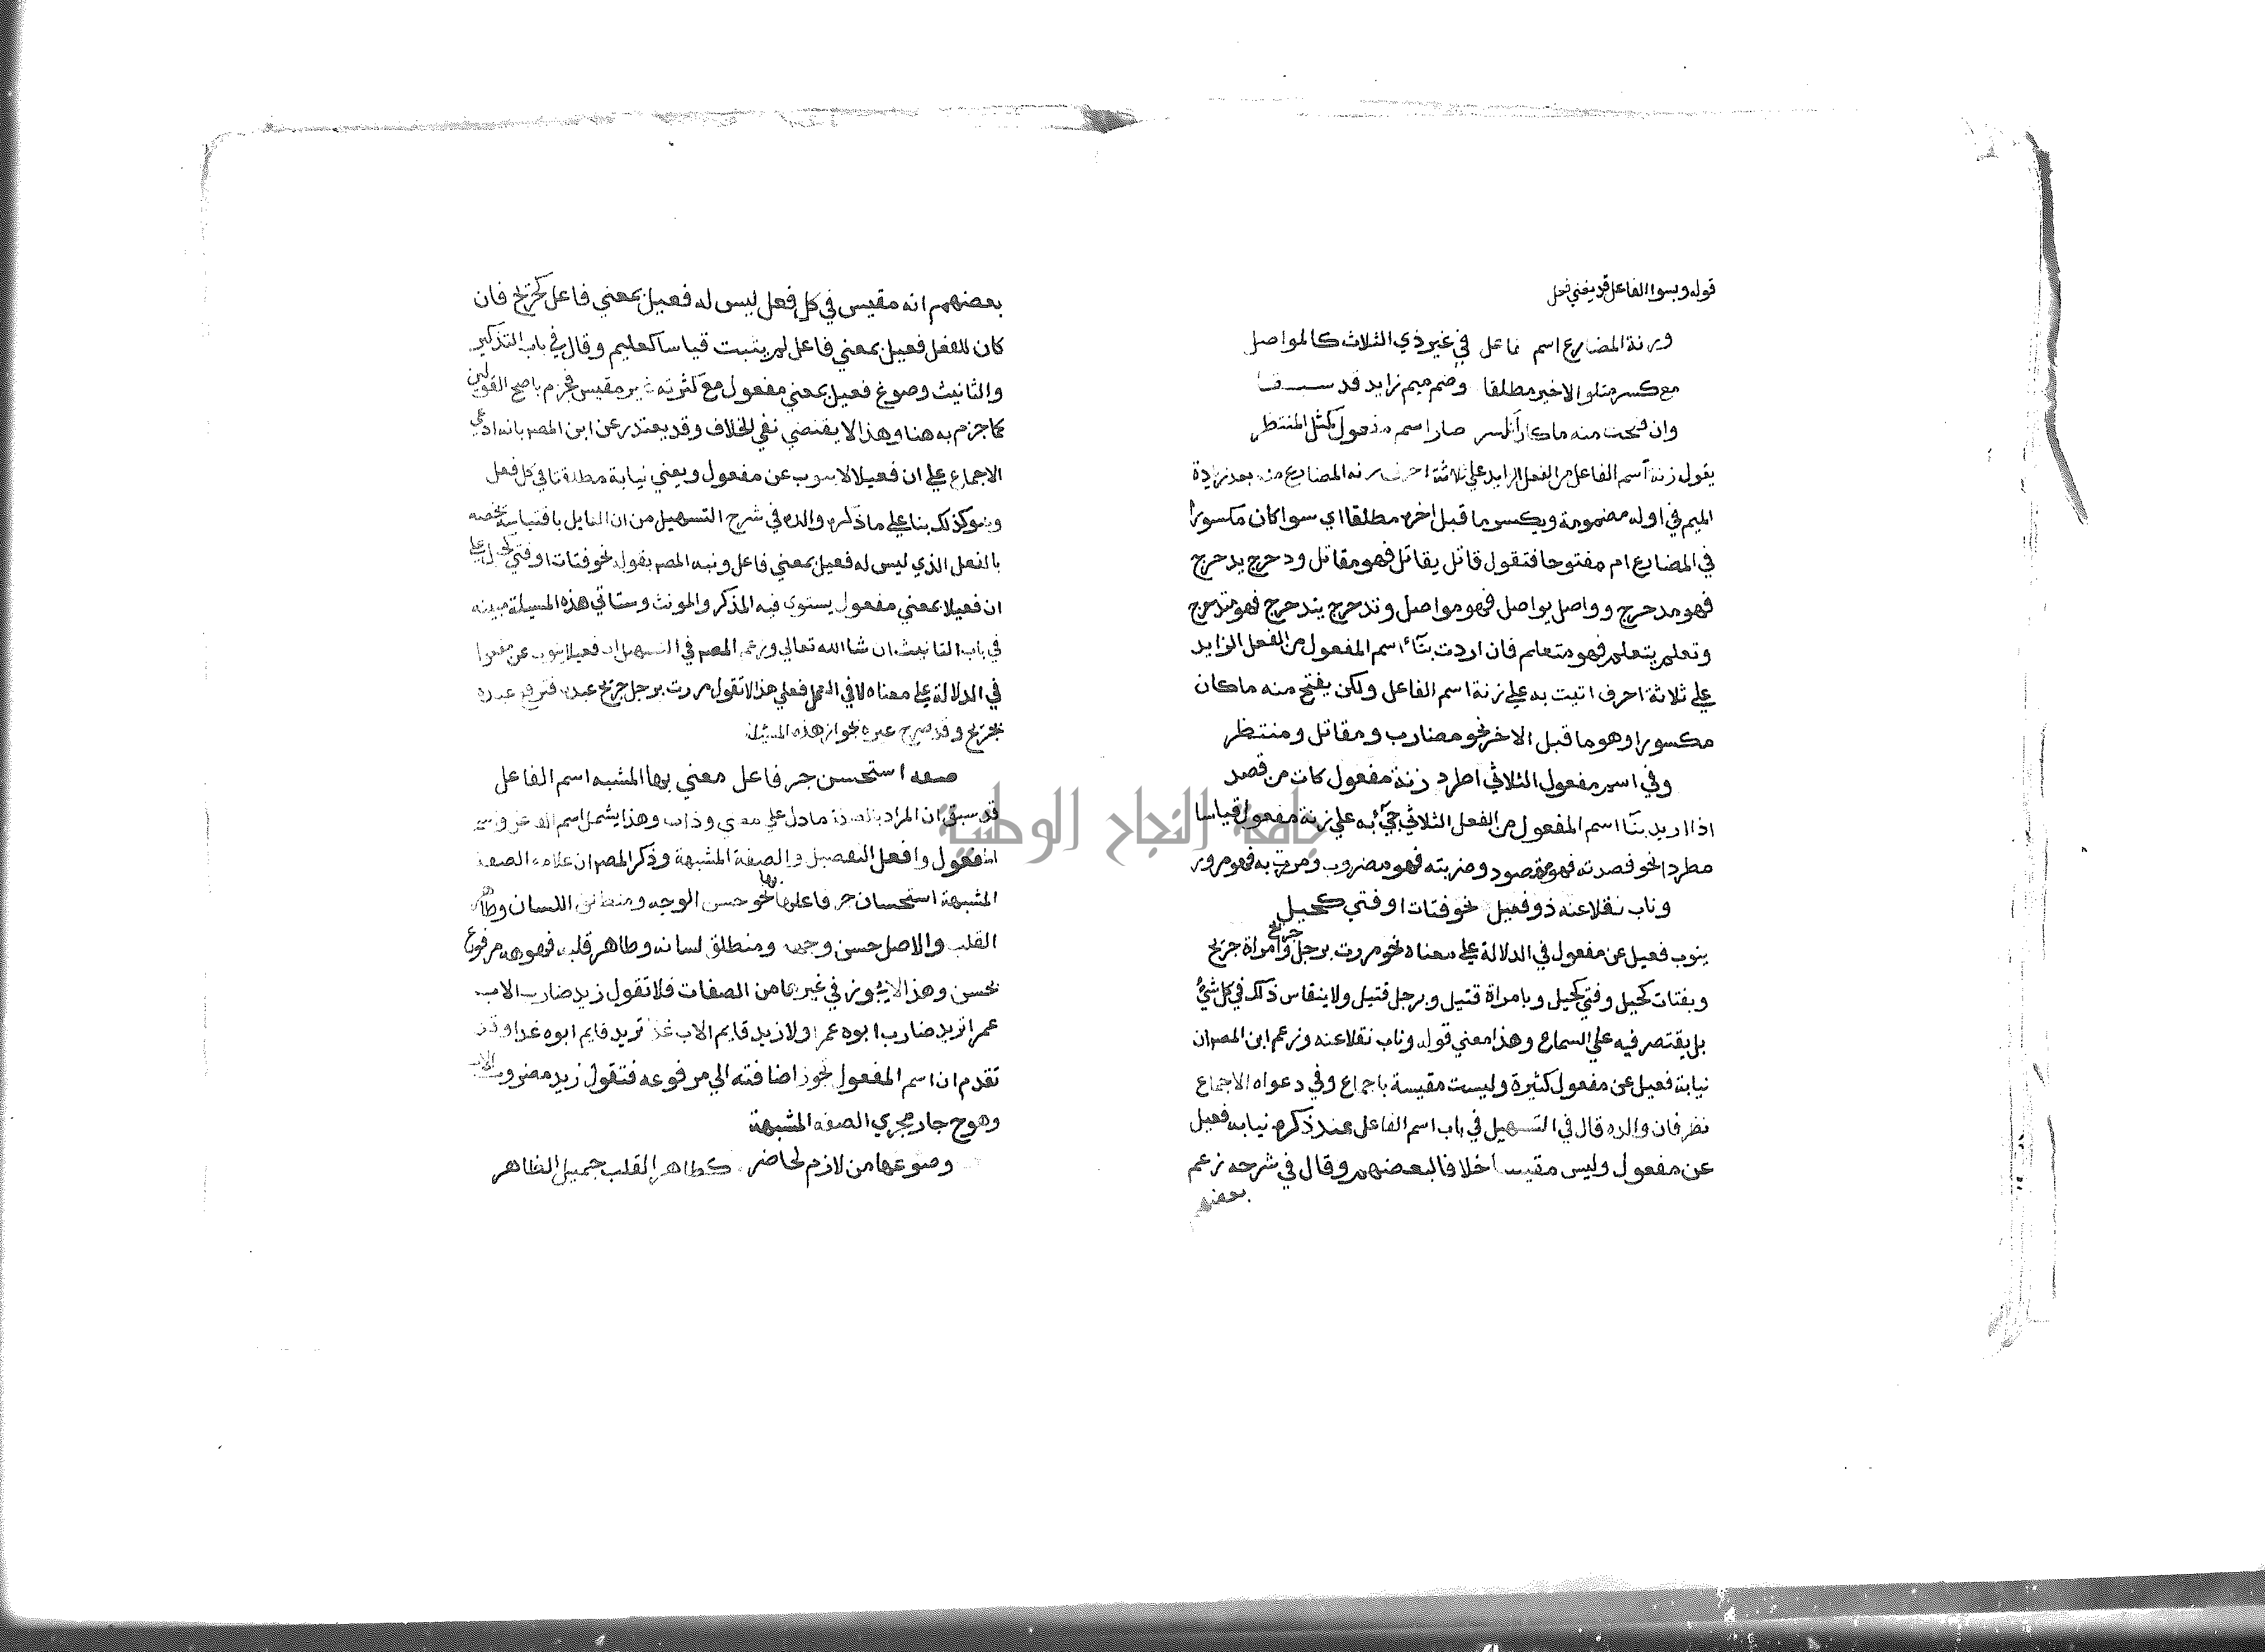 قوله وبسوا الفاعل قد يغني فعل
وزنة المضارع اسم فاعل في غير ذي الثلاث كالمواصل
مع كسر متلو الاخير مطلقا وضم ميم زايد قد سبقا
وان فتحت منه ما كان انكسر صار اسم مفعول كمثل المنتظر
يقول زنة اسم الفاعل من الفعل الزايد علي ثلاثة احرف زنة المضارع منه بعد زيادة
الميم في اوله مضمومة ويكسر ما قبل اخره مطلقا اي سوا كان مكسورا
في المضارع ام مفتوحا فتقول قاتل يقاتل فهو مقاتل ودحرج يدحرج
فهو مدحرج وواصل يواصل فهو مواصل وتدحرج يتدحرج فهو متدحرج
وتعلم يتعلم فهو متعلم فان اردت بناء اسم المفعول من الفعل الزايد
علي ثلاثة احرف اتيت به علي زنة اسم الفاعل ولكن يفتح منه ما كان
مكسورا وهو ما قبل الاخر نحو مضارب ومقاتل ومنتظر
وفي اسم مفعول الثلاثي اطرد زنة مفعول كات من قصد
اذا اريد بنا اسم المفعول من الفعل الثلاثي جيء به علي زنة مفعول قياسا
مطردا نحو قصدته فهو مقصود وضربته فهو مضروب ومررت به فهو ممرور
وناب نقلا عنه ذو فعيل نحو فتات او فتي كحيل
ينوب فعيل عن مفعول في الدلالة علي معناه نحو مررت برجل جريح وامراة جريح
وبفتات كحيل وفتي كحيل وبامراة قتيل وبرجل قتيل ولا ينقاس ذلك في كل شيء
بل يقتصر فيه علي السماع وهذا معني قوله وناب نقلا عنه وزعم ابن المصم ان
نيابة فعيل عن مفعول كثيرة وليست مقيسة باجماع وفي دعواه الاجماع
نظر فان والده قال في التسهيل في باب اسم الفاعل عند ذكره نيابه فعيل
عن مفعول وليس مقيسا خلافا لبعضهم وقال في شرحه زعم
بعضهم
بعضهم انه مقيس في كل فعل ليس له فعيل بمعني فاعل كجريح فان
كان للفعل فعيل بمعني فاعل لم يثبت قياسا كعليم وقال في باب التذكير
والتانيث وصوغ فعيل بمعني مفعول مع كثرته غير مقيس فجزم باصح القولين
كما جزم به هنا وهذا لا يقتضي نفي الخلاف وقد يعتذر عن ابن المصم بانه ادعي
الاجماع علي ان فعيلا لا ينوب عن مفعول ويعني نيابة مطلقتا في كل فعل
وهو كذلك بنا علي ما ذكره والده في شرح التسهيل من ان القايل باقتياسه يخصه
بالفعل الذي ليس له فعيل بمعني فاعل ونبه المصم بقوله نحو فتات او فتي كحيل علي
ان فعيلا بمعني مفعول يستوي فيه المذكر والمونث وستاتي هذه المسيلة مبينه
في باب التانيث ان شا الله تعالي وزعم المصم في التسهيل ان فعيلا ينوب عن مفعول
في الدلالة علي معناه لا في العمل فعلي هذا لا تقول مررت برجل جريح عبده فترفع عبده
بجريح وقد صرح غيره بجواز هذه المسيلة
صفه استحسن جر فاعل معني بها المشبه اسم الفاعل
قد سبق ان المراد بالصفة ما دل علي معني وذات وهذا يشمل اسم الفاعل واسم
المفعول وافعل التفضيل والصفة المشبهة وذكر المصم ان علامة الصفة
المشبهة استحسان جر فاعلها بها نحو حسن الوجه ومنطلق اللسان وطاهر
القلب والاصل حسن وجهه ومنطلق لسانه وطاهر قلبه فوجهه مرفوع
بحسن وهذا لا يجوز في غيرها من الصفات فلا تقول زيد ضارب الاب
عمرا تريد ضارب ابوه عمرا ولا زيد قايم الاب غدا تريد قايم ابوه غدا وقد
تقدم ان اسم المفعول يجوز اضافته الي مرفوعه فتقول زيد مضروب الاب
وهو ح جار مجري الصفه المشبهة
وصوغها من لازم لحاضر كطاهر القلب جميل الظاهر
جامعة النجاح الوطنية